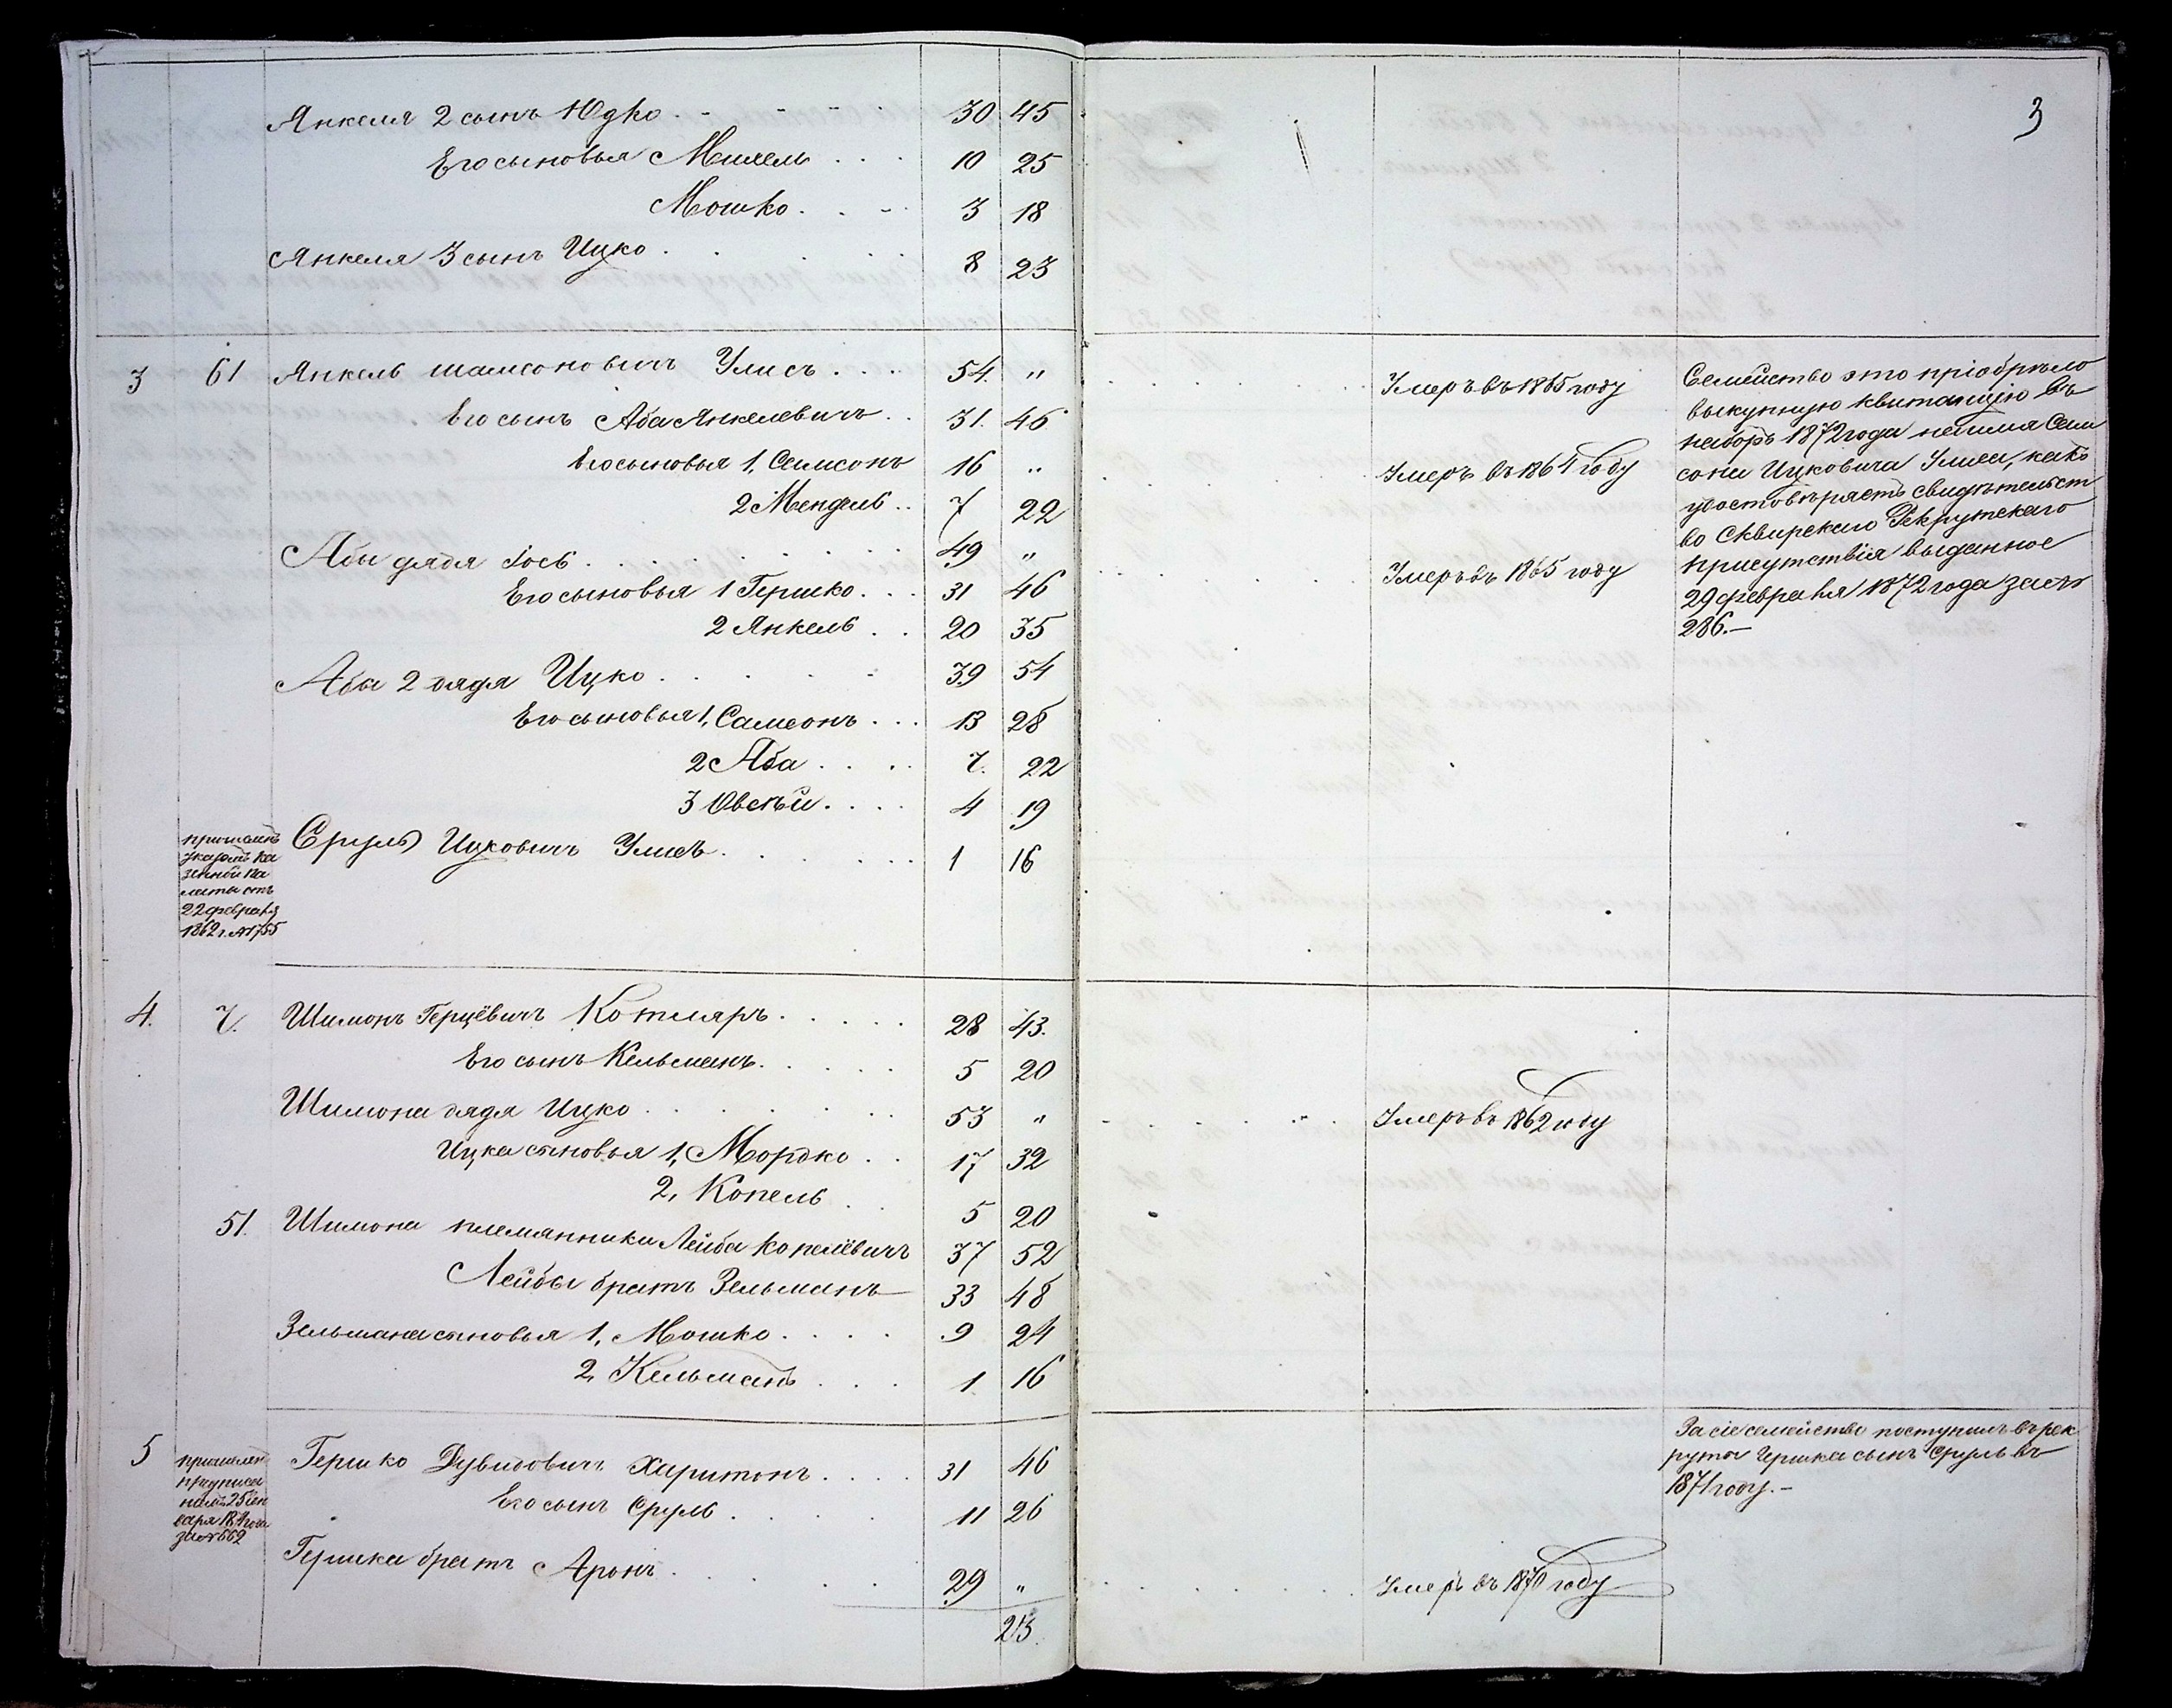 3
Янкеля 2 сынъ Юдко . . . . 30 45
Его сыновья Мошель . . . 10 25
Мошко . . . 3 18
Янкеля 3 сынъ Ицко . . . . 8 23
3 61 Янкель Шамсоновичъ Улисъ . . . . 54. " Умеръ въ 1865 году
Его сынъ Аба Янкелевичъ . . 31. 46
Его сыновья 1, Самсонъ 16 " Умеръ въ 1864 году
2 Мендель . . 7 22
Абы дядя Іось . . . . 49 " Умеръ въ 1865 году
Его сыновья 1 Гершко . . . 31 46
2 Янкель . . 20 35
Абы 2 дядя Ицко . . . . 39 54
Его сыновья 1, Самсонъ . . . 13 28
2 Аба . . . . 7. 22
3 Овсѣй . . . . 4 19
Сруль Ицковичъ Улисъ . . . . 1 16
Семейство это пріобрѣло
выкупную квитанцію въ
наборъ 1872 года на имя Сам
сона Ицковича Улиса, какъ
удостовѣряетъ свидѣтельст
во Сквирскаго Рекрутскаго
присутствія выданное
29 февраля 1872 года за №
286.—
причислен
указомъ Ка
зенной Па
латы отъ
22 февраля
1862 г. № 1755
4. 7. Шимонъ Герцёвичъ Котляръ . . . . . 28 43.
Его сынъ Кельманъ . . . . . 5 20
Шимона дядя Ицко . . . . 53 " Умеръ въ 1862 году
Ицка сыновья 1, Мордко . . 17 32
2, Копель . . 5 20
51. Шимона племянники Лейба Копелёвичъ 37 52
Лейбы братъ Зельманъ 33 48
Зельмана сыновья 1, Мошко . . . . 9 24
2, Кельманъ . . . 1 16
5 Гершко Дувидовичъ Харитонъ . . . . 31 46
Его сынъ Сруль . . . . . 11 26
Гершка братъ Аронъ . . . . . 29 " Умеръ въ 1870 году
23.
За сіе семейство поступилъ въ рек
руты Гершка сынъ Сруль въ
1871 году.—